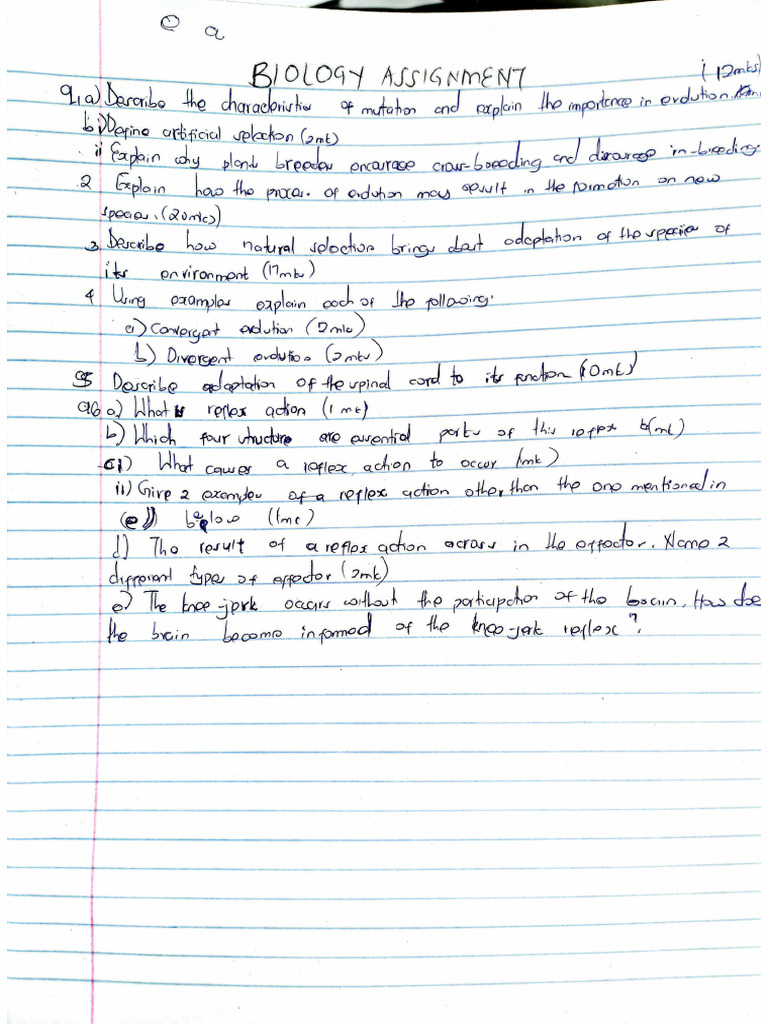 e a
BIOLOGY ASSIGNMENT (12mks)
Q1,a) Describe the characteristics of mutation and explain the importance in evolution.
b i) Define artificial selection (2mk)
ii Explain why plant breeders encourage cross-breeding and discourage in-breeding.
2 Explain how the process of evolution may result in the formation on new
species. (20mks)
3 Describe how natural selection brings about adaptation of the species of
its environment (17mks)
4 Using examples explain each of the following:
a) Convergent evolution (2mks)
b) Divergent evolution (2mks)
5 Describe adaptation of the spinal cord to its function (10mks)
Q6 a) What is reflex action (1 mk)
b) Which four structure are essential parts of this reflex (mk)
ci) What causes a reflex action to occur (mk)
ii) Give 2 examples of a reflex action other than the one mentioned in
(e) below (1mk)
d) The result of a reflex action in the effector. Name 2
different types of effector (2mk)
e) The knee-jerk occurs without the participation of the brain. How doe
the brain become informed of the knee-jerk reflex?